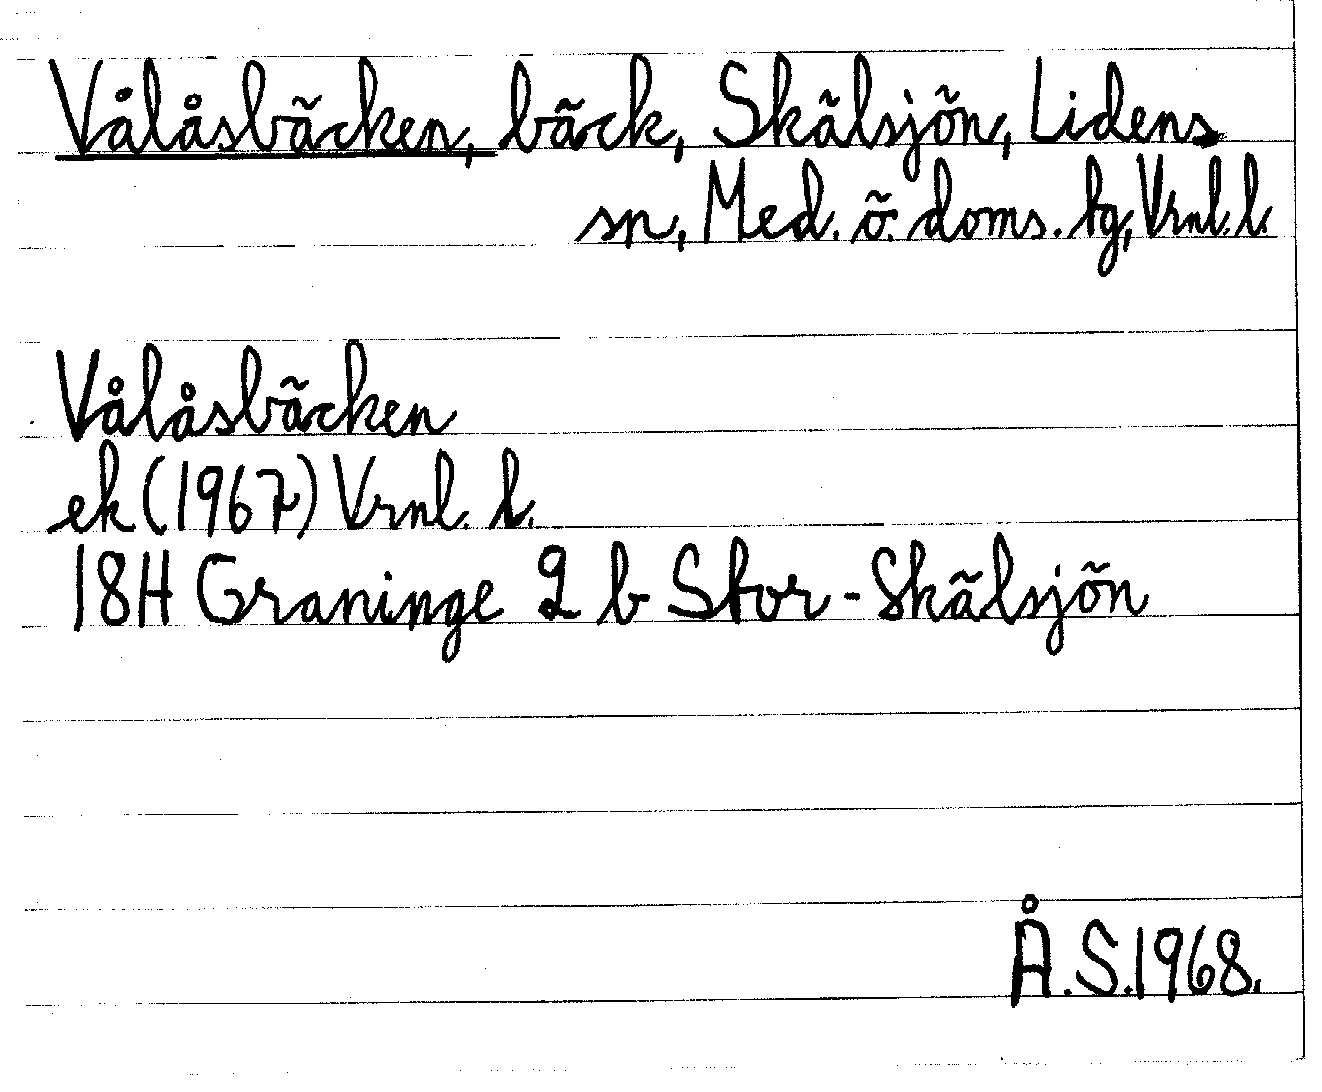 Vålåsbäcken, bäck, Skälsjön, Lidens
sn, Med. ö. doms. tg, Vrnl. l.
Vålåsbäcken
ek (1967) Vrnl. l.
18H Graninge 2 b Stor-Skälsjön
Å.S.1968.